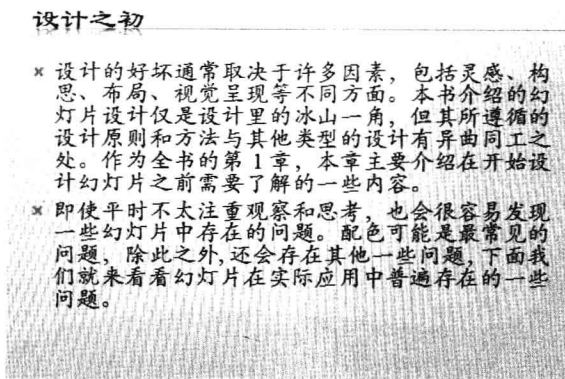 设计之初
设计的好坏通常取决于许多因素，包括灵感、构
思、布局、视觉呈现等不同方面。本书介绍的幻
灯片设计仅是设计里的冰山一角，但其所遵循的
设计原则和方法与其他类型的设计有异曲同工之
处。作为全书的第1章，本章主要介绍在开始设
计幻灯片之前需要了解的一些内容。
即使平时不太注重观察和思考，也会很容易发现
一些幻灯片中存在的问题。配色可能是最常见的
问题，除此之外,还会存在其他一些问题,下面我
们就来看看幻灯片在实际应用中普遍存在的一些
问题。